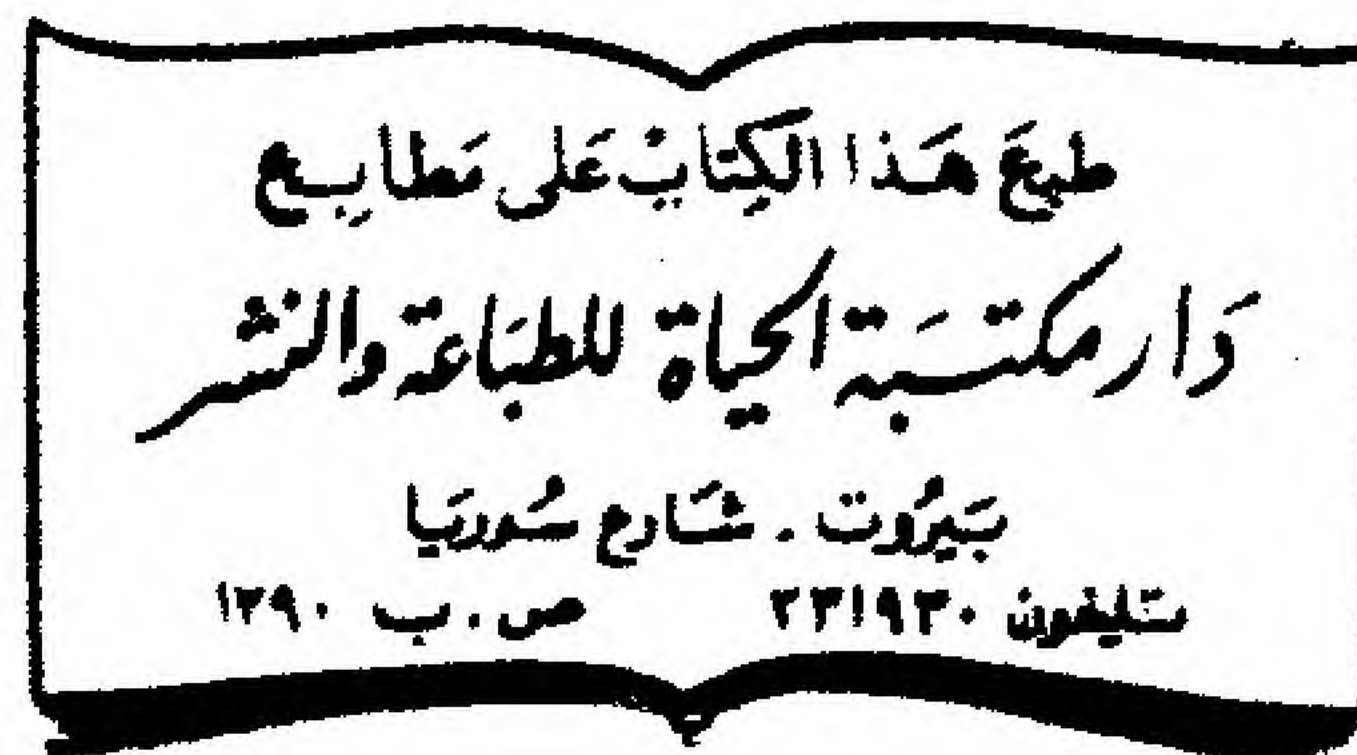 طبعَ هَذا الكِتابْ عَلى مَطابِع
دَار مكتَبة الحياة للطبَاعة والنشر
بَيرُوت . شَارع سُوريَا
تليفون ٢٣١٩٣٠ ص . ب ١٣٩٠